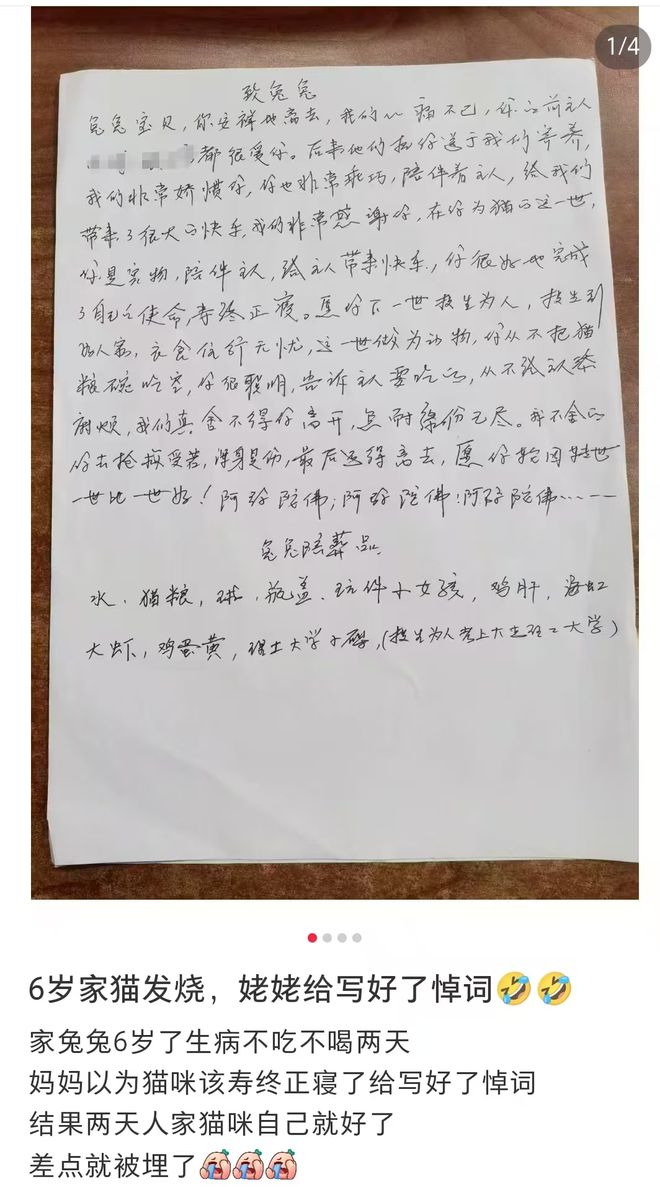 1/4
致兔兔
兔兔宝贝,你安祥地离去,我的心痛不已,你的前主人
都很爱你。后来他们把你送于我们寄养,
我们非常娇惯你,你也非常乖巧,陪伴着主人,给我们
带来了很大的快乐,我们非常感谢你,在你为猫的这一世,
你是宠物,陪伴主人,给主人带来快乐,你很好地完成
了自己的使命,寿终正寝。愿你下一世投生为人,投生到
人家,衣食住行无忧,这一世做为动物,你从不把猫
粮碗吃空,你很聪明,告诉主人要吃的,从不给主人添
麻烦,我们真舍不得你离开,怎耐缘份已尽。我不舍的
你去抢救受苦,浑身是伤,最后还得离去,愿你轮回转世
一世比一世好!阿弥陀佛;阿弥陀佛!阿弥陀佛……
兔兔陪葬品
水、猫粮,球、瓶盖、玩件小女孩,鸡肝,海虹
大虾,鸡蛋黄,理土大学小碍,(投生为人考上大连理工大学)
6岁家猫发烧,姥姥给写好了悼词🤣🤣
家兔兔6岁了生病不吃不喝两天
妈妈以为猫咪该寿终正寝了给写好了悼词
结果两天人家猫咪自己就好了
差点就被埋了